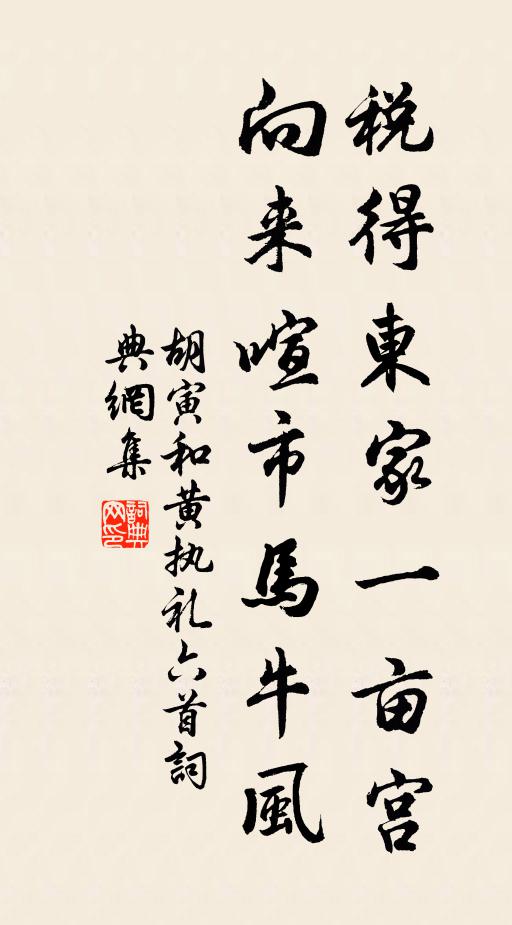 税得東家一亩宫
向来喧市馬牛風
胡寅和黄执礼六首詞
典網集
詞典网印